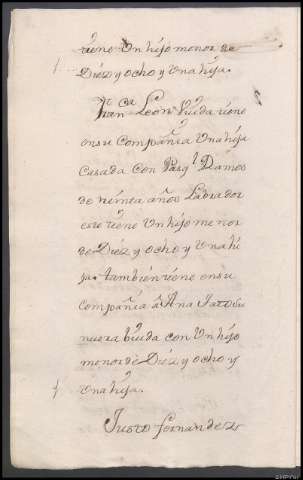 tiene Un hijo menor de
Diez y ocho y Una hija.
Franca Leon Viuda tiene
en su Compañia Una hija
Casada con Pasql Damos
de treinta años Labrador
este tiene Un hijo menor
de Diez y ocho y Una hi
ja. tambien tiene en su
Compañia à Ana su
nuera biuda con Un hijo
menor de Diez y ocho y
Una hija.
Justo fernandez